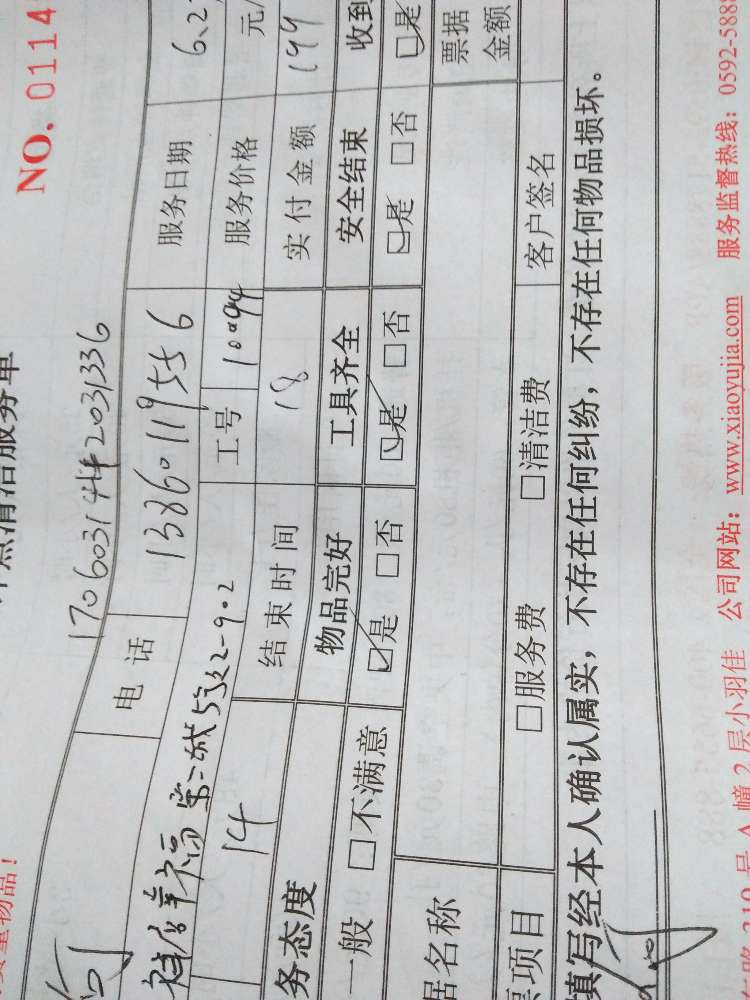 贵重物品！
点清洁服务单
NO. 0114
170603144203133 6
电话 13860119556 服务日期 6.2
幸福 第二城 5号 2-902 工号 10094 服务价格 元/
14 结束时间 18 实付金额 199
务态度 物品完好 工具齐全 安全结束 收到
一般 □不满意 ☑是 □否 ☑是 □否 ☑是 □否 ☑是
据名称 票据金额
项目 □服务费 □清洁费 客户签名
填写经本人确认属实，不存在任何纠纷，不存在任何物品损坏。
310 号 A 幢 2 层小羽佳 公司网站：www.xiaoyujia.com 服务监督热线：0592-5888